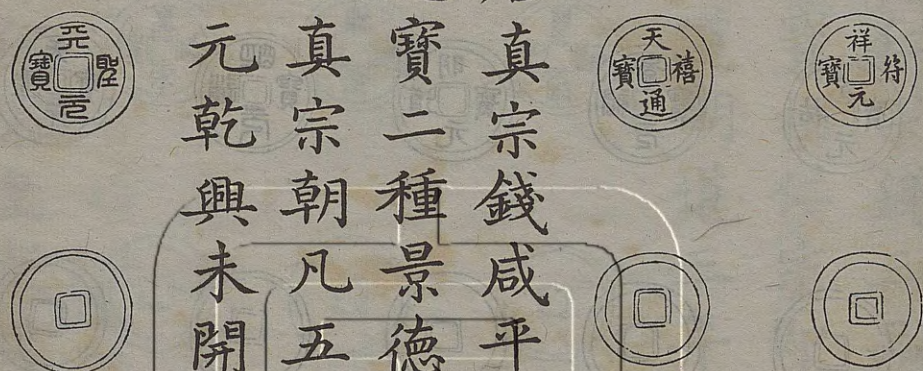 祥符元寶
天禧通寶
真宗錢咸平
寶二種景德
真宗朝凡五
元乾興未開
天聖元寶